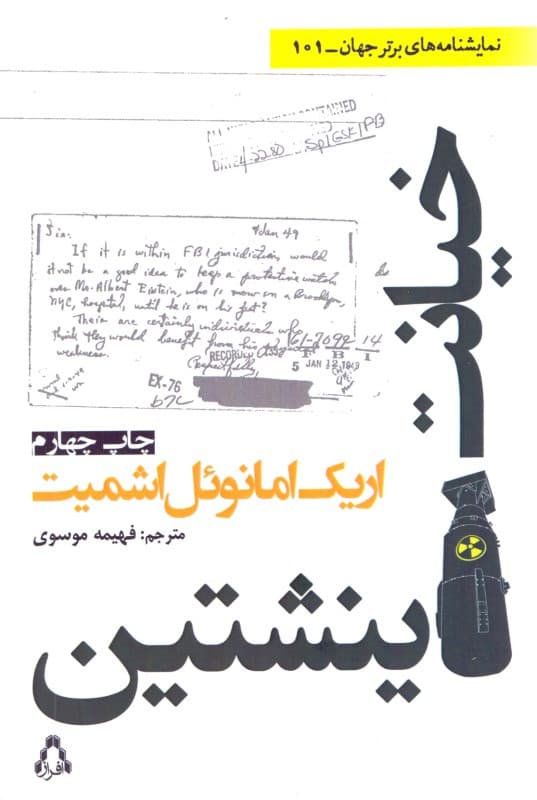 نمایشنامه‌های برتر جهان ـ ۱۰۱
CONTAINED
DATE 4/22/80 Sp1GSK/PB
خیانت
Sir: 9 Jan 49
If it is within FBI jurisdiction, would
it not be a good idea to keep a protective watch
over Mr. Albert Einstein, who is now in a Brooklyn,
NYC, hospital, until he is on his feet?
Their are certainly individuals who
think they would benefit from his
weakness.
Respectfully,
RECORDED
61-7099 14
5 JAN 12 1949
EX-76
b7C
چاپ چهارم
اریک امانوئل اشمیت
مترجم: فهیمه موسوی
اینشتین
افراز